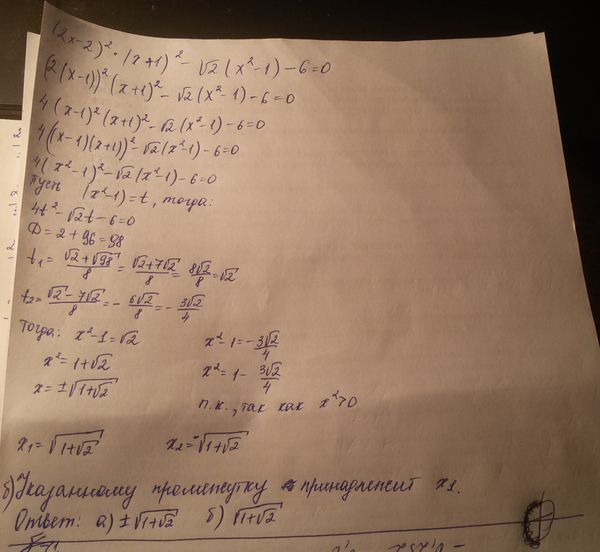 (2x-2)²·(x+1)² - √2(x²-1)-6=0
(2(x-1))²(x+1)² - √2(x²-1)-6=0
4(x-1)²(x+1)² - √2(x²-1)-6=0
4((x-1)(x+1))² - √2(x²-1)-6=0
4(x²-1)² - √2(x²-1)-6=0
Пусть (x²-1)=t, тогда:
4t² - √2t - 6=0
D = 2+96=98
t₁ = (√2+√98)/8 = (√2+7√2)/8 = 8√2/8 = √2
t₂ = (√2-7√2)/8 = - 6√2/8 = - 3√2/4
Тогда: x²-1=√2
x²=1+√2
x=±√(1+√2)
x²-1=-3√2/4
x²=1-3√2/4
п.к., так как x²>0
x₁=√(1+√2) x₂=-√(1+√2)
б) Указанному промежутку принадлежит x₁.
Ответ: а) ±√(1+√2) б) √(1+√2)